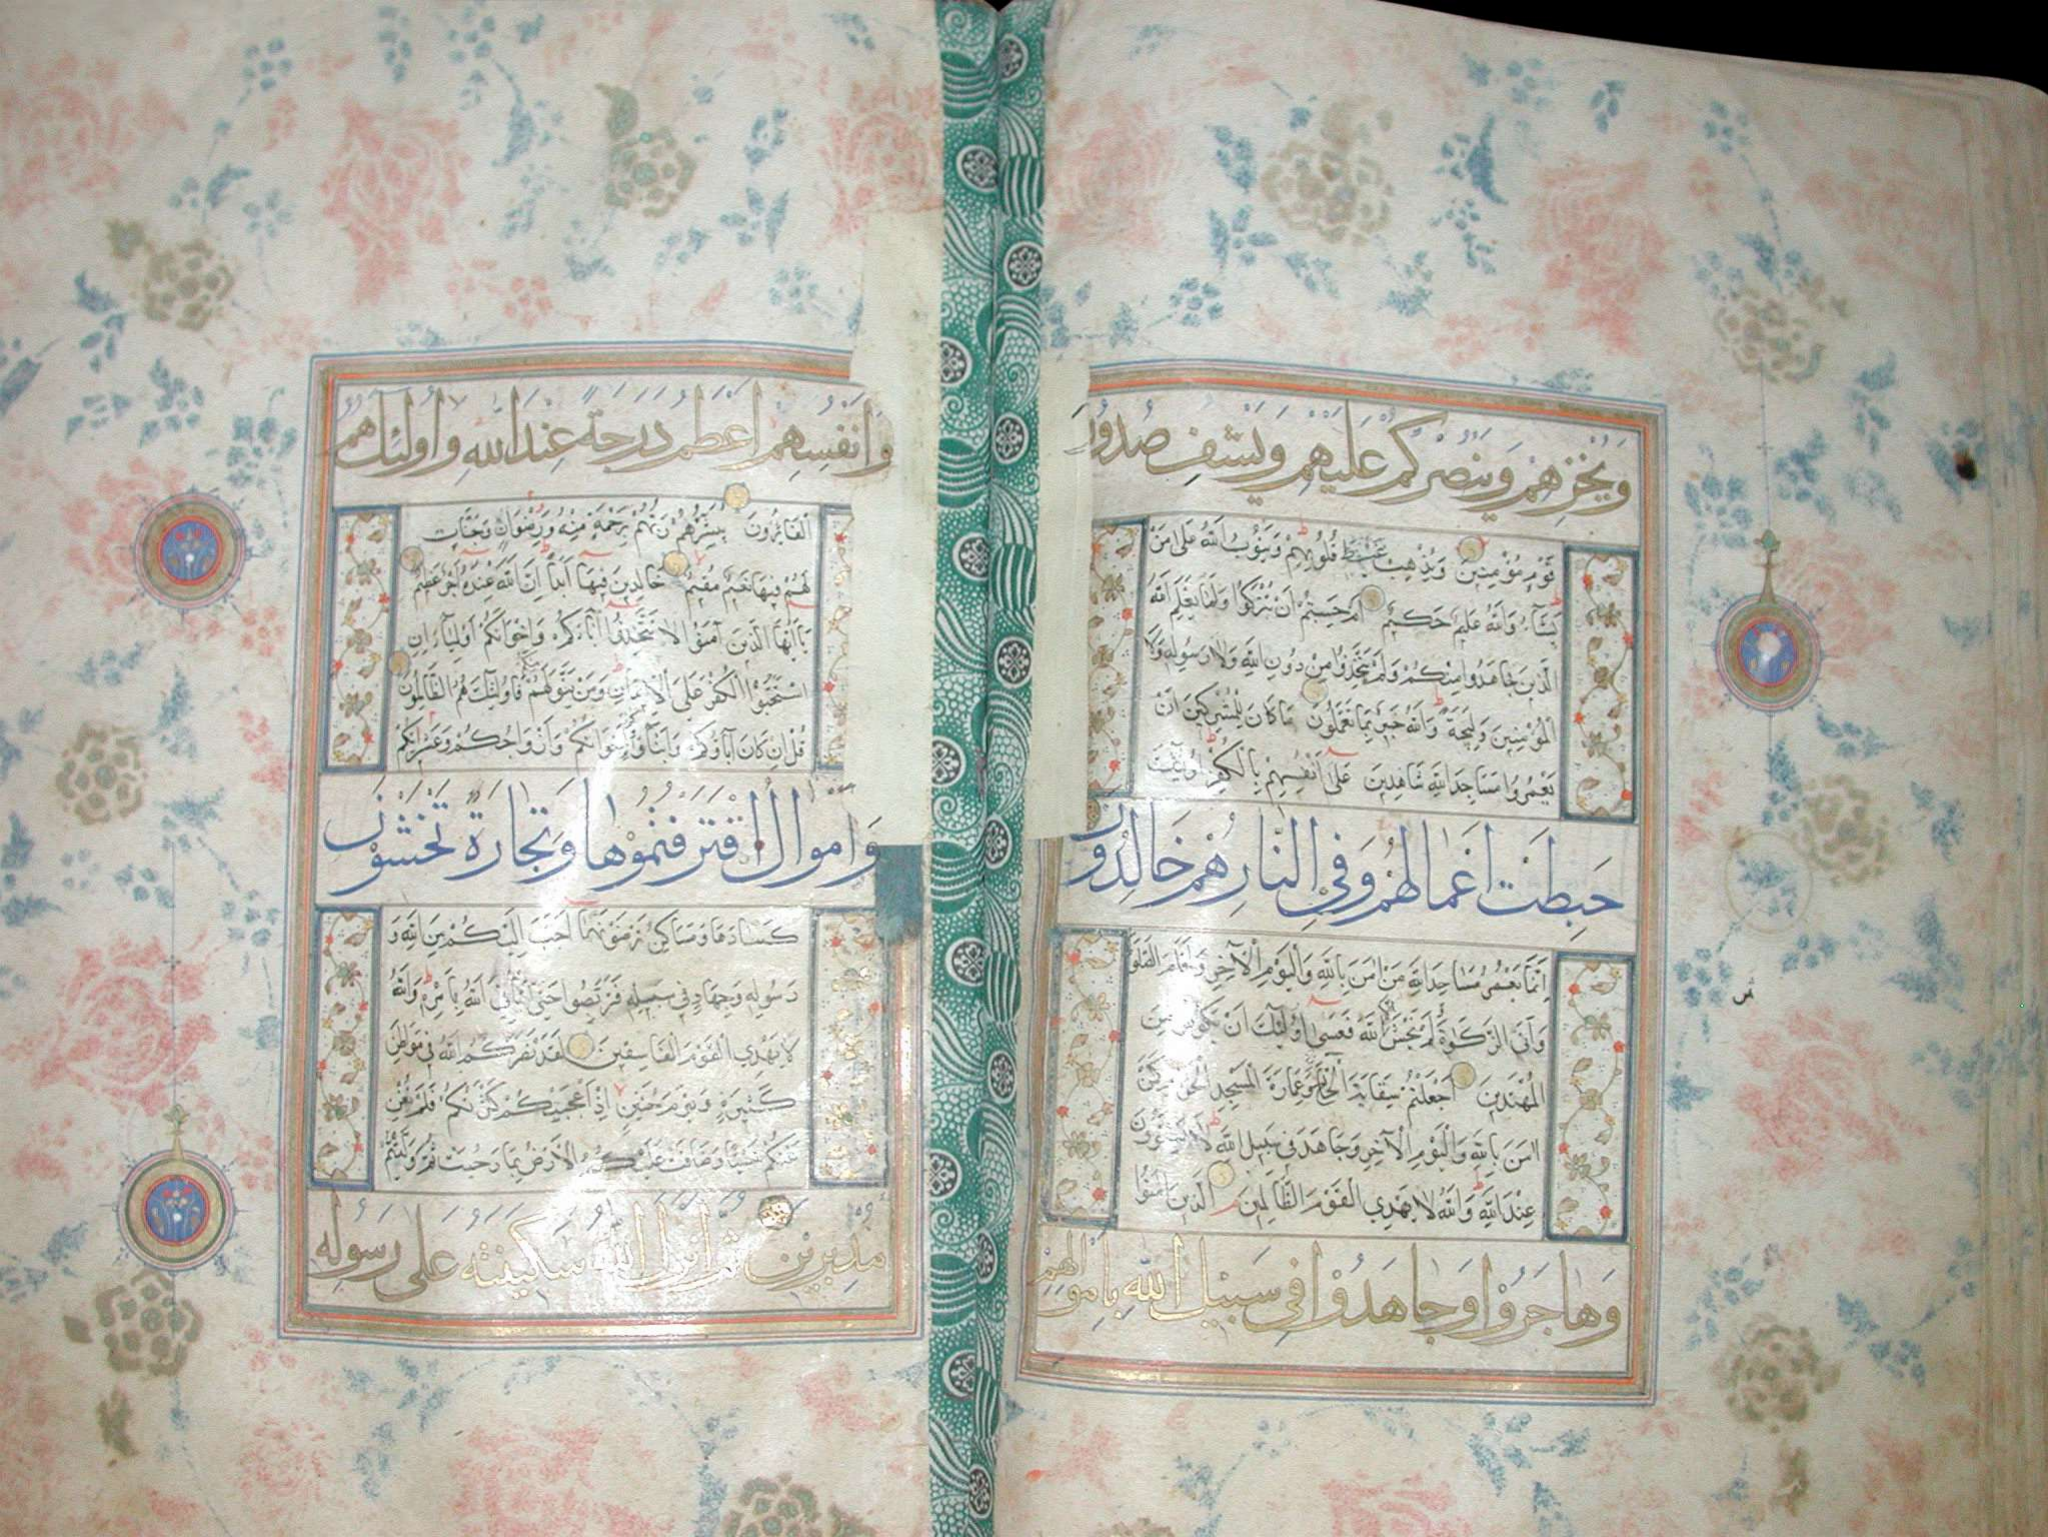 وَيُخْزِهِمْ وَيَنْصُرْكُمْ عَلَيْهِمْ وَيَشْفِ صُدُورَ
قَوْمٍ مُؤْمِنِينَ وَيُذْهِبْ غَيْظَ قُلُوبِهِمْ وَيَتُوبُ اللَّهُ عَلَى مَنْ
يَشَآءُ وَاللَّهُ عَلِيمٌ حَكِيمٌ أَمْ حَسِبْتُمْ أَنْ تُتْرَكُوا وَلَمَّا يَعْلَمِ اللَّهُ
الَّذِينَ جَاهَدُوا مِنْكُمْ وَلَمْ يَتَّخِذُوا مِنْ دُونِ اللَّهِ وَلَا رَسُولِهِ وَلَا
الْمُؤْمِنِينَ وَلِيجَةً وَاللَّهُ خَبِيرٌ بِمَا تَعْمَلُونَ مَا كَانَ لِلْمُشْرِكِينَ أَنْ
يَعْمُرُوا مَسَاجِدَ اللَّهِ شَاهِدِينَ عَلَى أَنْفُسِهِمْ بِالْكُفْرِ أُولَئِكَ
حَبِطَتْ أَعْمَالُهُمْ وَفِي النَّارِ هُمْ خَالِدُونَ
إِنَّمَا يَعْمُرُ مَسَاجِدَ اللَّهِ مَنْ اٰمَنَ بِاللَّهِ وَالْيَوْمِ الْآخِرِ وَأَقَامَ الصَّلَوةَ
وَآتَى الزَّكَوٰةَ وَلَمْ يَخْشَ إِلَّا اللَّهَ فَعَسَى أُولَئِكَ أَنْ يَكُونُوا مِنَ
الْمُهْتَدِينَ أَجَعَلْتُمْ سِقَايَةَ الْحَاجِّ وَعِمَارَةَ الْمَسْجِدِ الْحَرَامِ كَمَنْ
اٰمَنَ بِاللَّهِ وَالْيَوْمِ الْآخِرِ وَجَاهَدَ فِي سَبِيلِ اللَّهِ لَا يَسْتَوُونَ
عِنْدَ اللَّهِ وَاللَّهُ لَا يَهْدِي الْقَوْمَ الظَّالِمِينَ الَّذِينَ اٰمَنُوا
وَهَاجَرُوا وَجَاهَدُوا فِي سَبِيلِ اللَّهِ بِأَمْوَالِهِمْ
وَأَنْفُسِهِمْ أَعْظَمُ دَرَجَةً عِنْدَ اللَّهِ وَأُولَئِكَ هُمُ
الْفَائِزُونَ يُبَشِّرُهُمْ رَبُّهُمْ بِرَحْمَةٍ مِنْهُ وَرِضْوَانٍ وَجَنَّاتٍ
لَهُمْ فِيهَا نَعِيمٌ مُقِيمٌ خَالِدِينَ فِيهَا أَبَدًا إِنَّ اللَّهَ عِنْدَهُ أَجْرٌ عَظِيمٌ
يَا أَيُّهَا الَّذِينَ آمَنُوا لَا تَتَّخِذُوا آبَاءَكُمْ وَإِخْوَانَكُمْ أَوْلِيَآءَ إِنِ
اسْتَحَبُّوا الْكُفْرَ عَلَى الْإِيمَانِ وَمَنْ يَتَوَلَّهُمْ مِنْكُمْ فَأُولَئِكَ هُمُ الظَّالِمُونَ
قُلْ إِنْ كَانَ آبَاؤُكُمْ وَأَبْنَاؤُكُمْ وَإِخْوَانُكُمْ وَأَزْوَاجُكُمْ وَعَشِيرَتُكُمْ
وَأَمْوَالٌ اقْتَرَفْتُمُوهَا وَتِجَارَةٌ تَخْشَوْنَ
كَسَادَهَا وَمَسَاكِنُ تَرْضَوْنَهَا أَحَبَّ إِلَيْكُمْ مِنَ اللَّهِ وَ
رَسُولِهِ وَجِهَادٍ فِي سَبِيلِهِ فَتَرَبَّصُوا حَتَّى يَأْتِيَ اللَّهُ بِأَمْرِهِ وَاللَّهُ
لَا يَهْدِي الْقَوْمَ الْفَاسِقِينَ لَقَدْ نَصَرَكُمُ اللَّهُ فِي مَوَاطِنَ
كَثِيرَةٍ وَيَوْمَ حُنَيْنٍ إِذْ أَعْجَبَتْكُمْ كَثْرَتُكُمْ فَلَمْ تُغْنِ
عَنْكُمْ شَيْئًا وَضَاقَتْ عَلَيْكُمُ الْأَرْضُ بِمَا رَحُبَتْ ثُمَّ وَلَّيْتُمْ
مُدْبِرِينَ ثُمَّ أَنْزَلَ اللَّهُ سَكِينَتَهُ عَلَى رَسُولِهِ